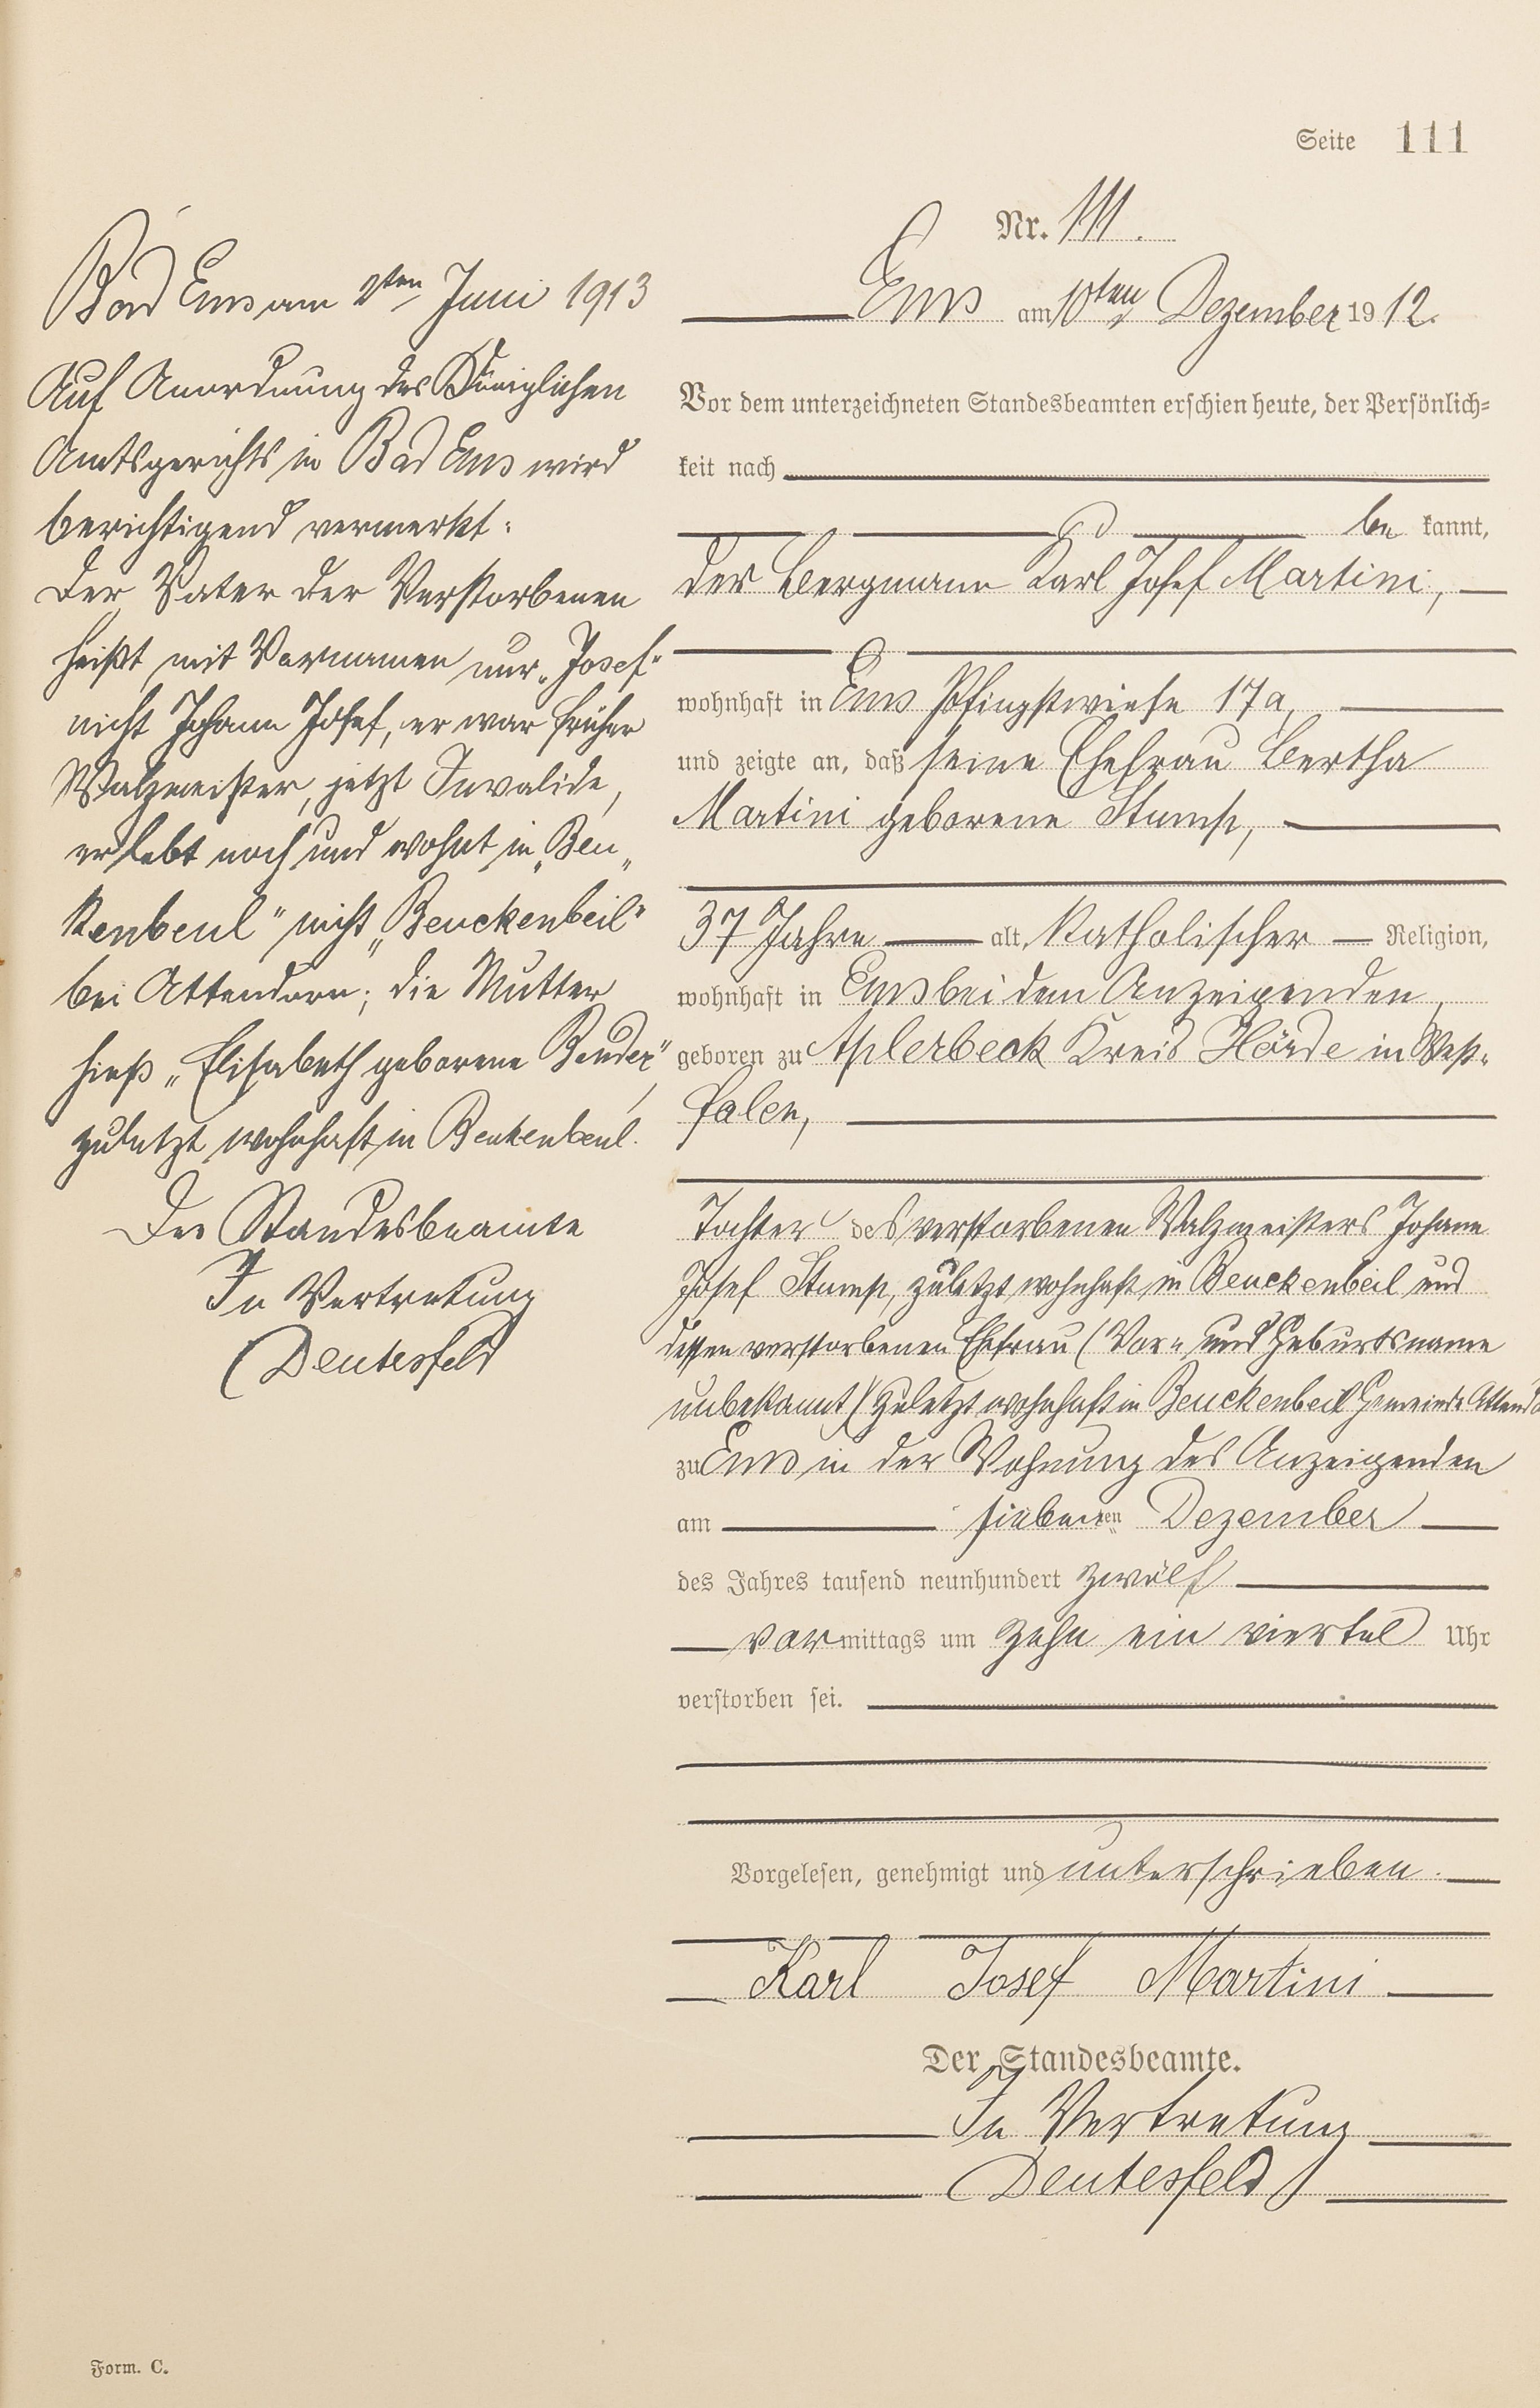 Seite 111
Nr. 111.
Bad Ems am 2ten Juni 1913
Auf Anordnung des Königlichen
Amtsgerichts in Bad Ems wird
berichtigend vermerkt:
Der Vater der Verstorbenen
heißt mit Vornamen nur „Josef"
nicht Johann Josef, er war früher
Walzmeister, jetzt Invalide,
er lebt noch und wohnt in „Beu„
kenbeul" nicht „Beuckenbeil"
bei Attendorn; die Mutter
hieß „Elisabeth geborene Bender",
zuletzt wohnhaft in Beukenbeul.
Der Standesbeamte
In Vertretung
Deutesfeld
Ems am 10ten Dezember 1912.
Vor dem unterzeichneten Standesbeamten erschien heute, der Persönlich-
keit nach
be kannt,
der Bergmann Karl Josef Martini,
wohnhaft in Ems Pfingstwiese 17a,
und zeigte an, daß seine Ehefrau Bertha
Martini geborene Stumpf,
37 Jahre alt, katholischer Religion,
wohnhaft in Ems bei dem Anzeigenden,
geboren zu Aplerbeck Kreis Hörde in West„
falen,
Tochter des verstorbenen Walzmeisters Johann
Josef Stumpf, zuletzt wohnhaft in Beuckenbeil und
dessen verstorbenen Ehefrau (Vor„ und Geburtsname
unbekannt) zuletzt wohnhaft in Beuckenbeil Gemeinde
zu Ems in der Wohnung des Anzeigenden
am siebenten Dezember
des Jahres tausend neunhundert zwölf
vormittags um zehn ein viertel Uhr
verstorben sei.
Vorgelesen, genehmigt und unterschrieben.
Karl Josef Martini
Der Standesbeamte.
In Vertretung
Deutesfeld
Form. C.